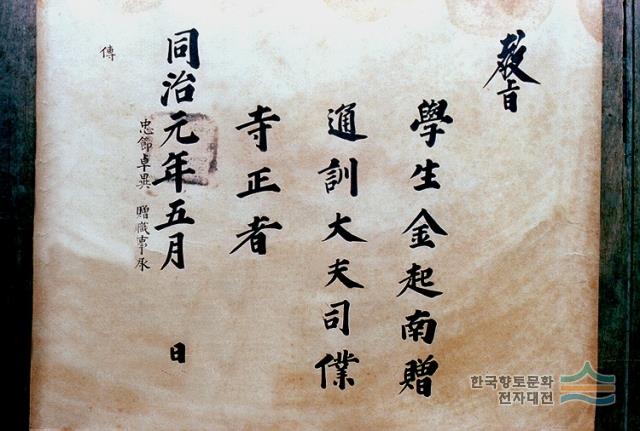 敎旨
學生金起南贈
通訓大夫司僕
寺正者
同治元年五月 日
忠節卓異 贈職事承
傳
한국향토문화
전자대전